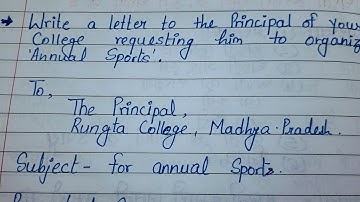 → Write a letter to the Principal of you
College requesting him to organiz
'Annual Sports'.
To,
The Principal,
Rungta College, Madhya Pradesh.
Subject - for annual Sports.